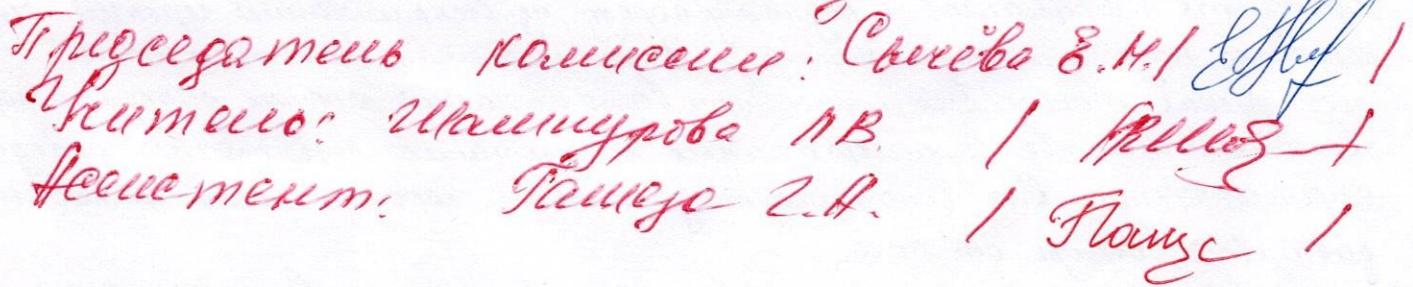 Председатель комиссии: Сычёва Е.М. / /
Учитель: Шаминурова Л.В. / /
Ассистент: Г.А. / /